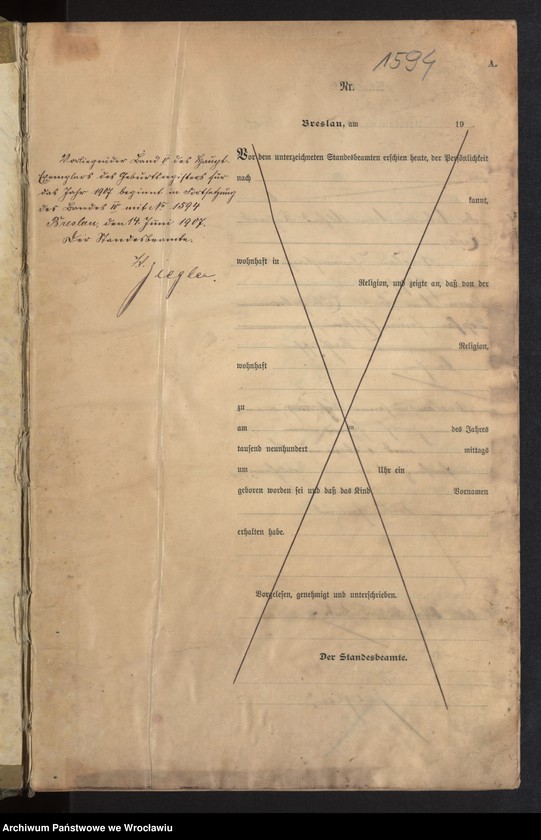 1594
A.
Nr.
Breslau, am 19
Vor dem unterzeichneten Standesbeamten erschien heute, der Persönlichkeit
nach
kannt,
wohnhaft in
Religion, und zeigte an, daß von der
Religion,
wohnhaft
zu
am des Jahres
tausend neunhundert mittags
um Uhr ein
geboren worden sei und daß das Kind Vornamen
erhalten habe.
Vorgelesen, genehmigt und unterschrieben.
Der Standesbeamte.
Vorliegender Band V des Haupt-
Exemplars des Geburtsregisters für
das Jahr 1907 beginnt in Fortsetzung
des Bandes IV mit No 1594
Breslau, den 14. Juni 1907.
Der Standesbeamte.
Ziegler.
Archiwum Państwowe we Wrocławiu